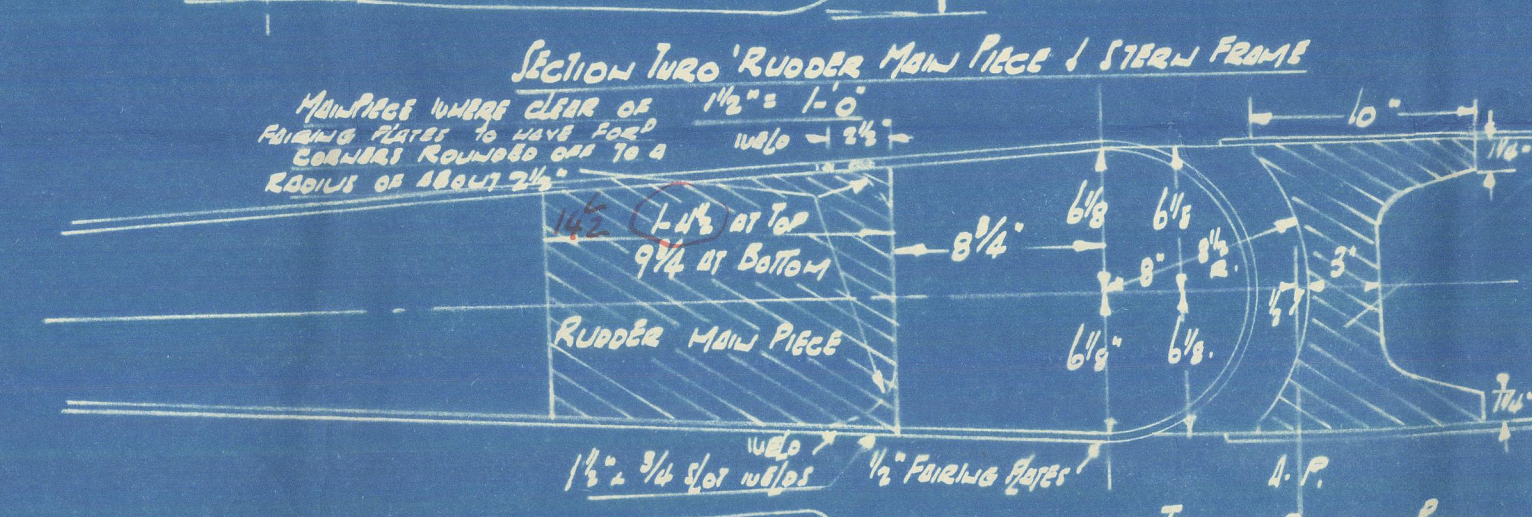 SECTION THRO' RUDDER MAIN PIECE & STERN FRAME
1½" = 1'-0"
MAINPIECE WHERE CLEAR OF
FAIRING PLATES TO HAVE FORD
CORNERS ROUNDED OFF TO A
RADIUS OF ABOUT 2½"
WELD
2½"
10"
14½
1-4½ AT TOP
9¾ AT BOTTOM
8¾"
6⅛
6⅛
8"
8½ R.
3"
½"
RUDDER MAIN PIECE
6⅛"
6⅛.
WELD
1½" x ¾ SLOT WELDS
½" FAIRING PLATES
A.P.